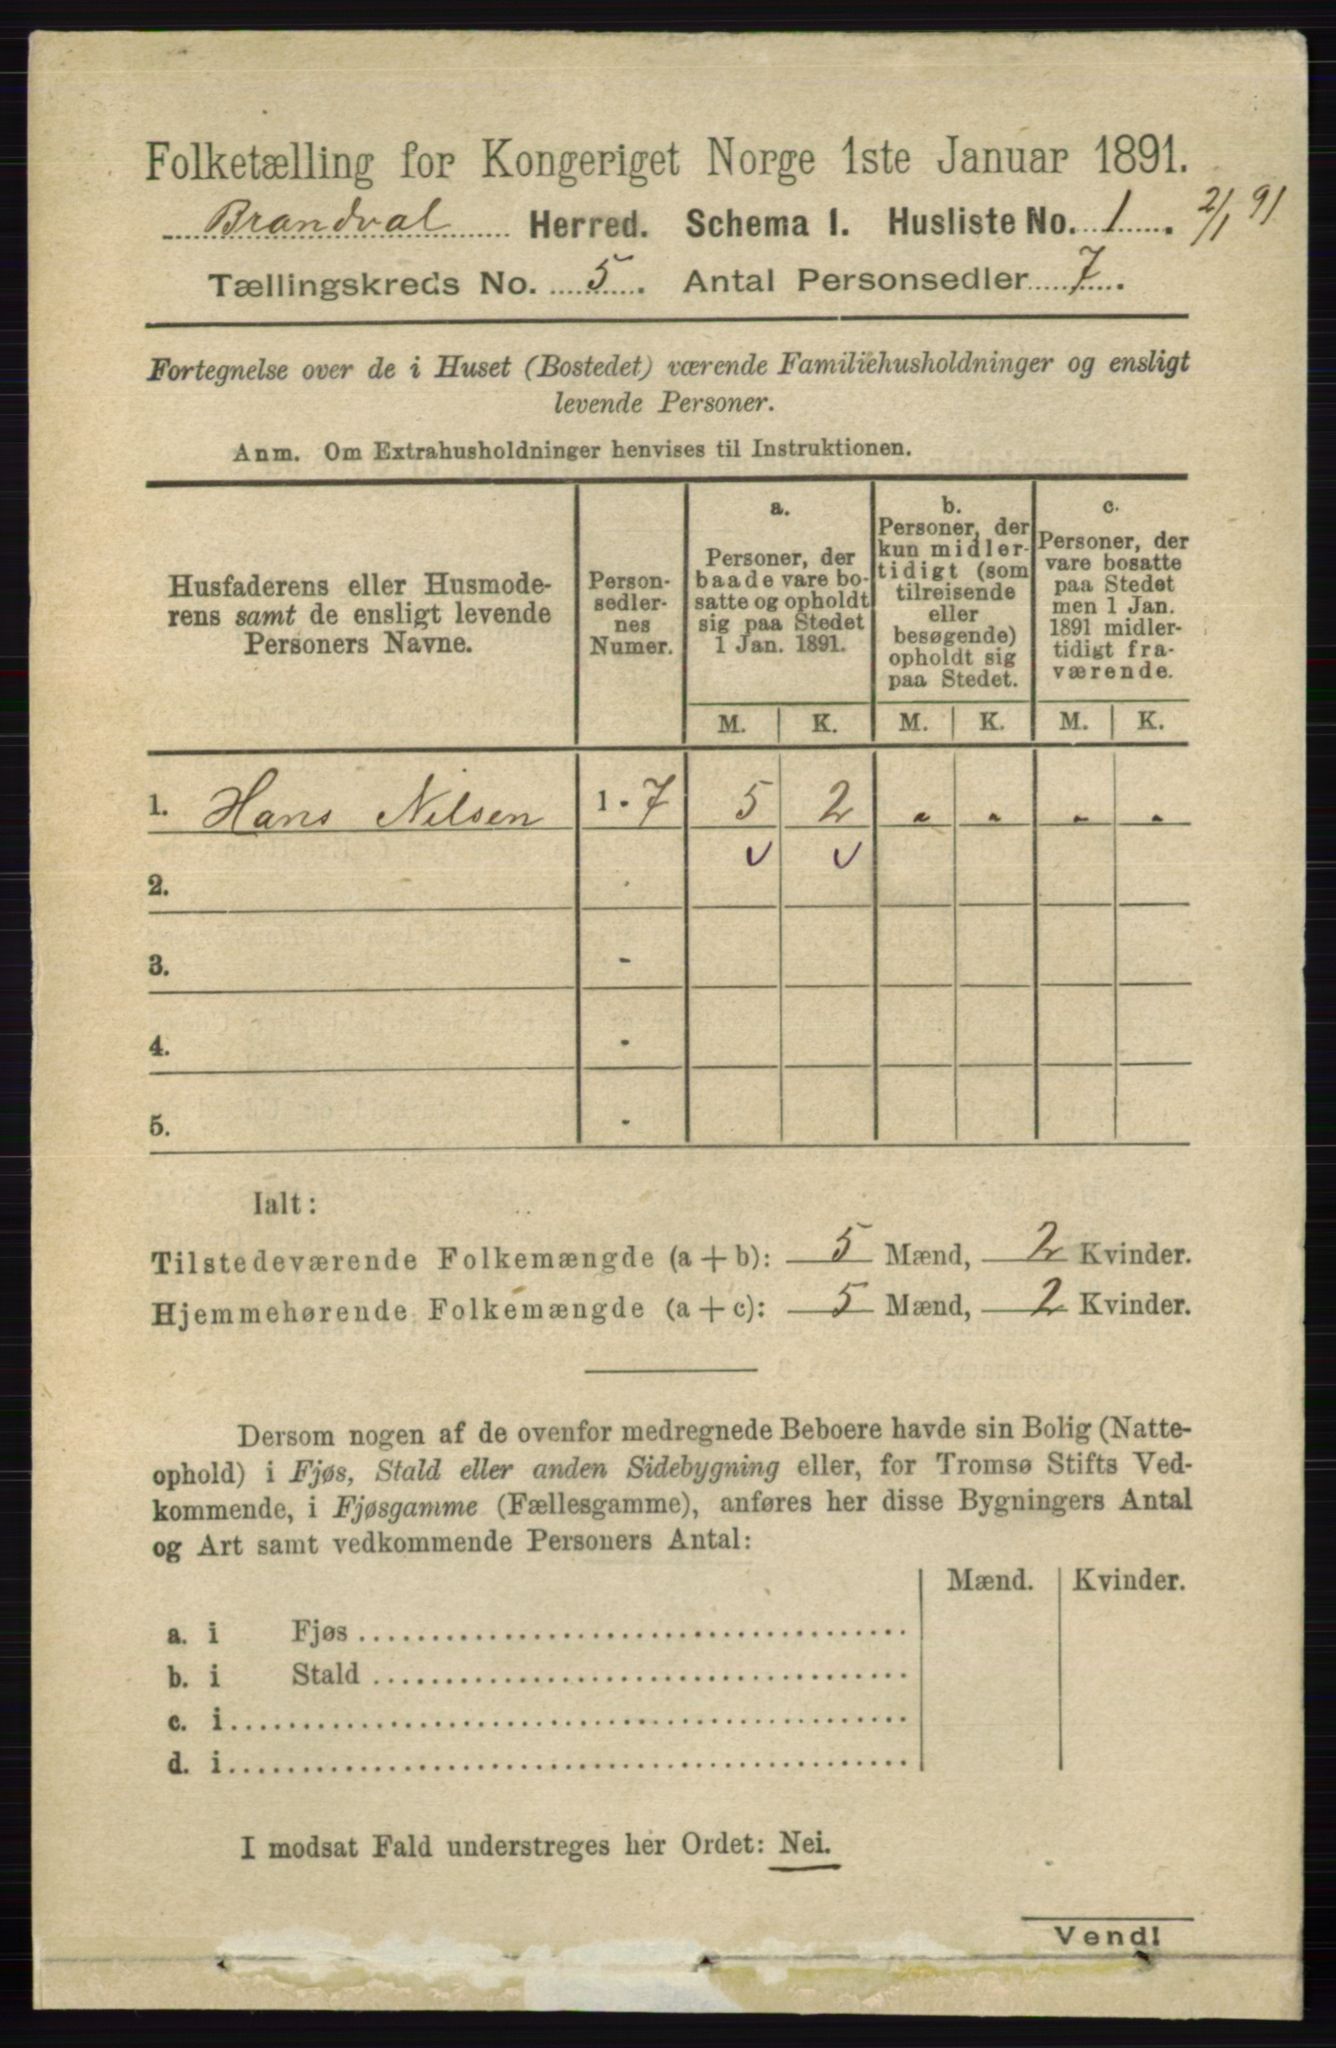 Folketælling for Kongeriget Norge 1ste Januar 1891.
Brandval Herred. Schema I. Husliste No. 1. 2/1 91
Tællingskreds No. 5. Antal Personsedler 7.
Fortegnelse over de i Huset (Bostedet) værende Familiehusholdninger og ensligt
levende Personer.
Anm. Om Extrahusholdninger henvises til Instruktionen.
Husfaderens eller Husmode-
rens samt de ensligt levende
Personers Navne.
Person-
sedler-
nes
Numer.
a.
Personer, der
baade vare bo-
satte og opholdt
sig paa Stedet
1 Jan. 1891.
b.
Personer, der
kun midler-
tidigt (som
tilreisende
eller
besøgende)
opholdt sig
paa Stedet.
c.
Personer, der
vare bosatte
paa Stedet
men 1 Jan.
1891 midler-
tidigt fra-
værende.
M. K. M. K. M. K.
1. Hans Nilsen 1 - 7 5 2 " " " "
v v
2. -
3. -
4. -
5. -
Ialt:
Tilstedeværende Folkemængde (a + b): 5 Mænd, 2 Kvinder.
Hjemmehørende Folkemængde (a + c): 5 Mænd, 2 Kvinder.
Dersom nogen af de ovenfor medregnede Beboere havde sin Bolig (Natte-
ophold) i Fjøs, Stald eller anden Sidebygning eller, for Tromsø Stifts Ved-
kommende, i Fjøsgamme (Fællesgamme), anføres her disse Bygningers Antal
og Art samt vedkommende Personers Antal:
Mænd. Kvinder.
a. i Fjøs
b. i Stald
c. i
d. i
I modsat Fald understreges her Ordet: Nei.
Vend!